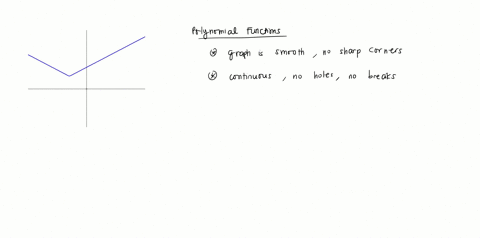 Polynomial Functions
graph is smooth, no sharp corners
continuous, no holes, no breaks